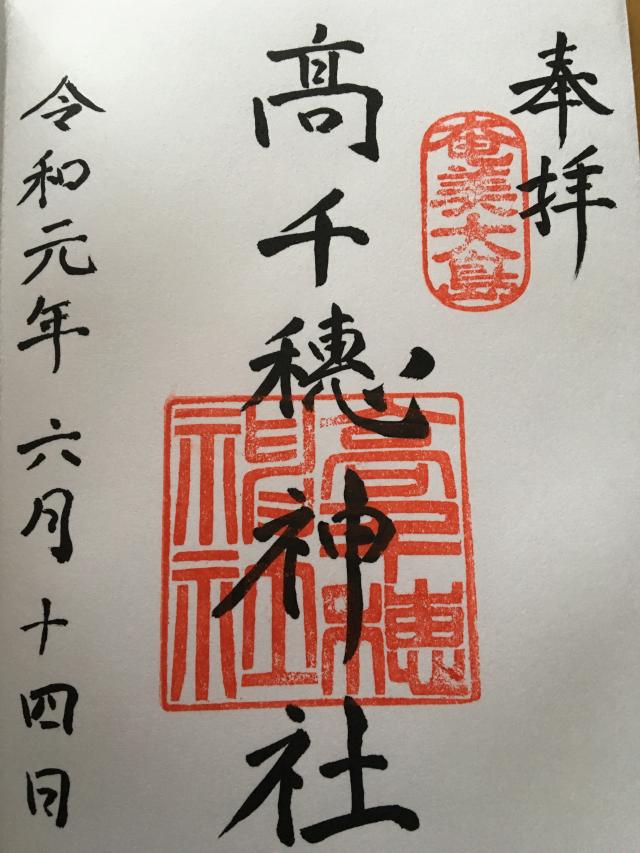 奉拝
奄美大島
高千穂神社
高千穂
神社
令和元年 六月十四日